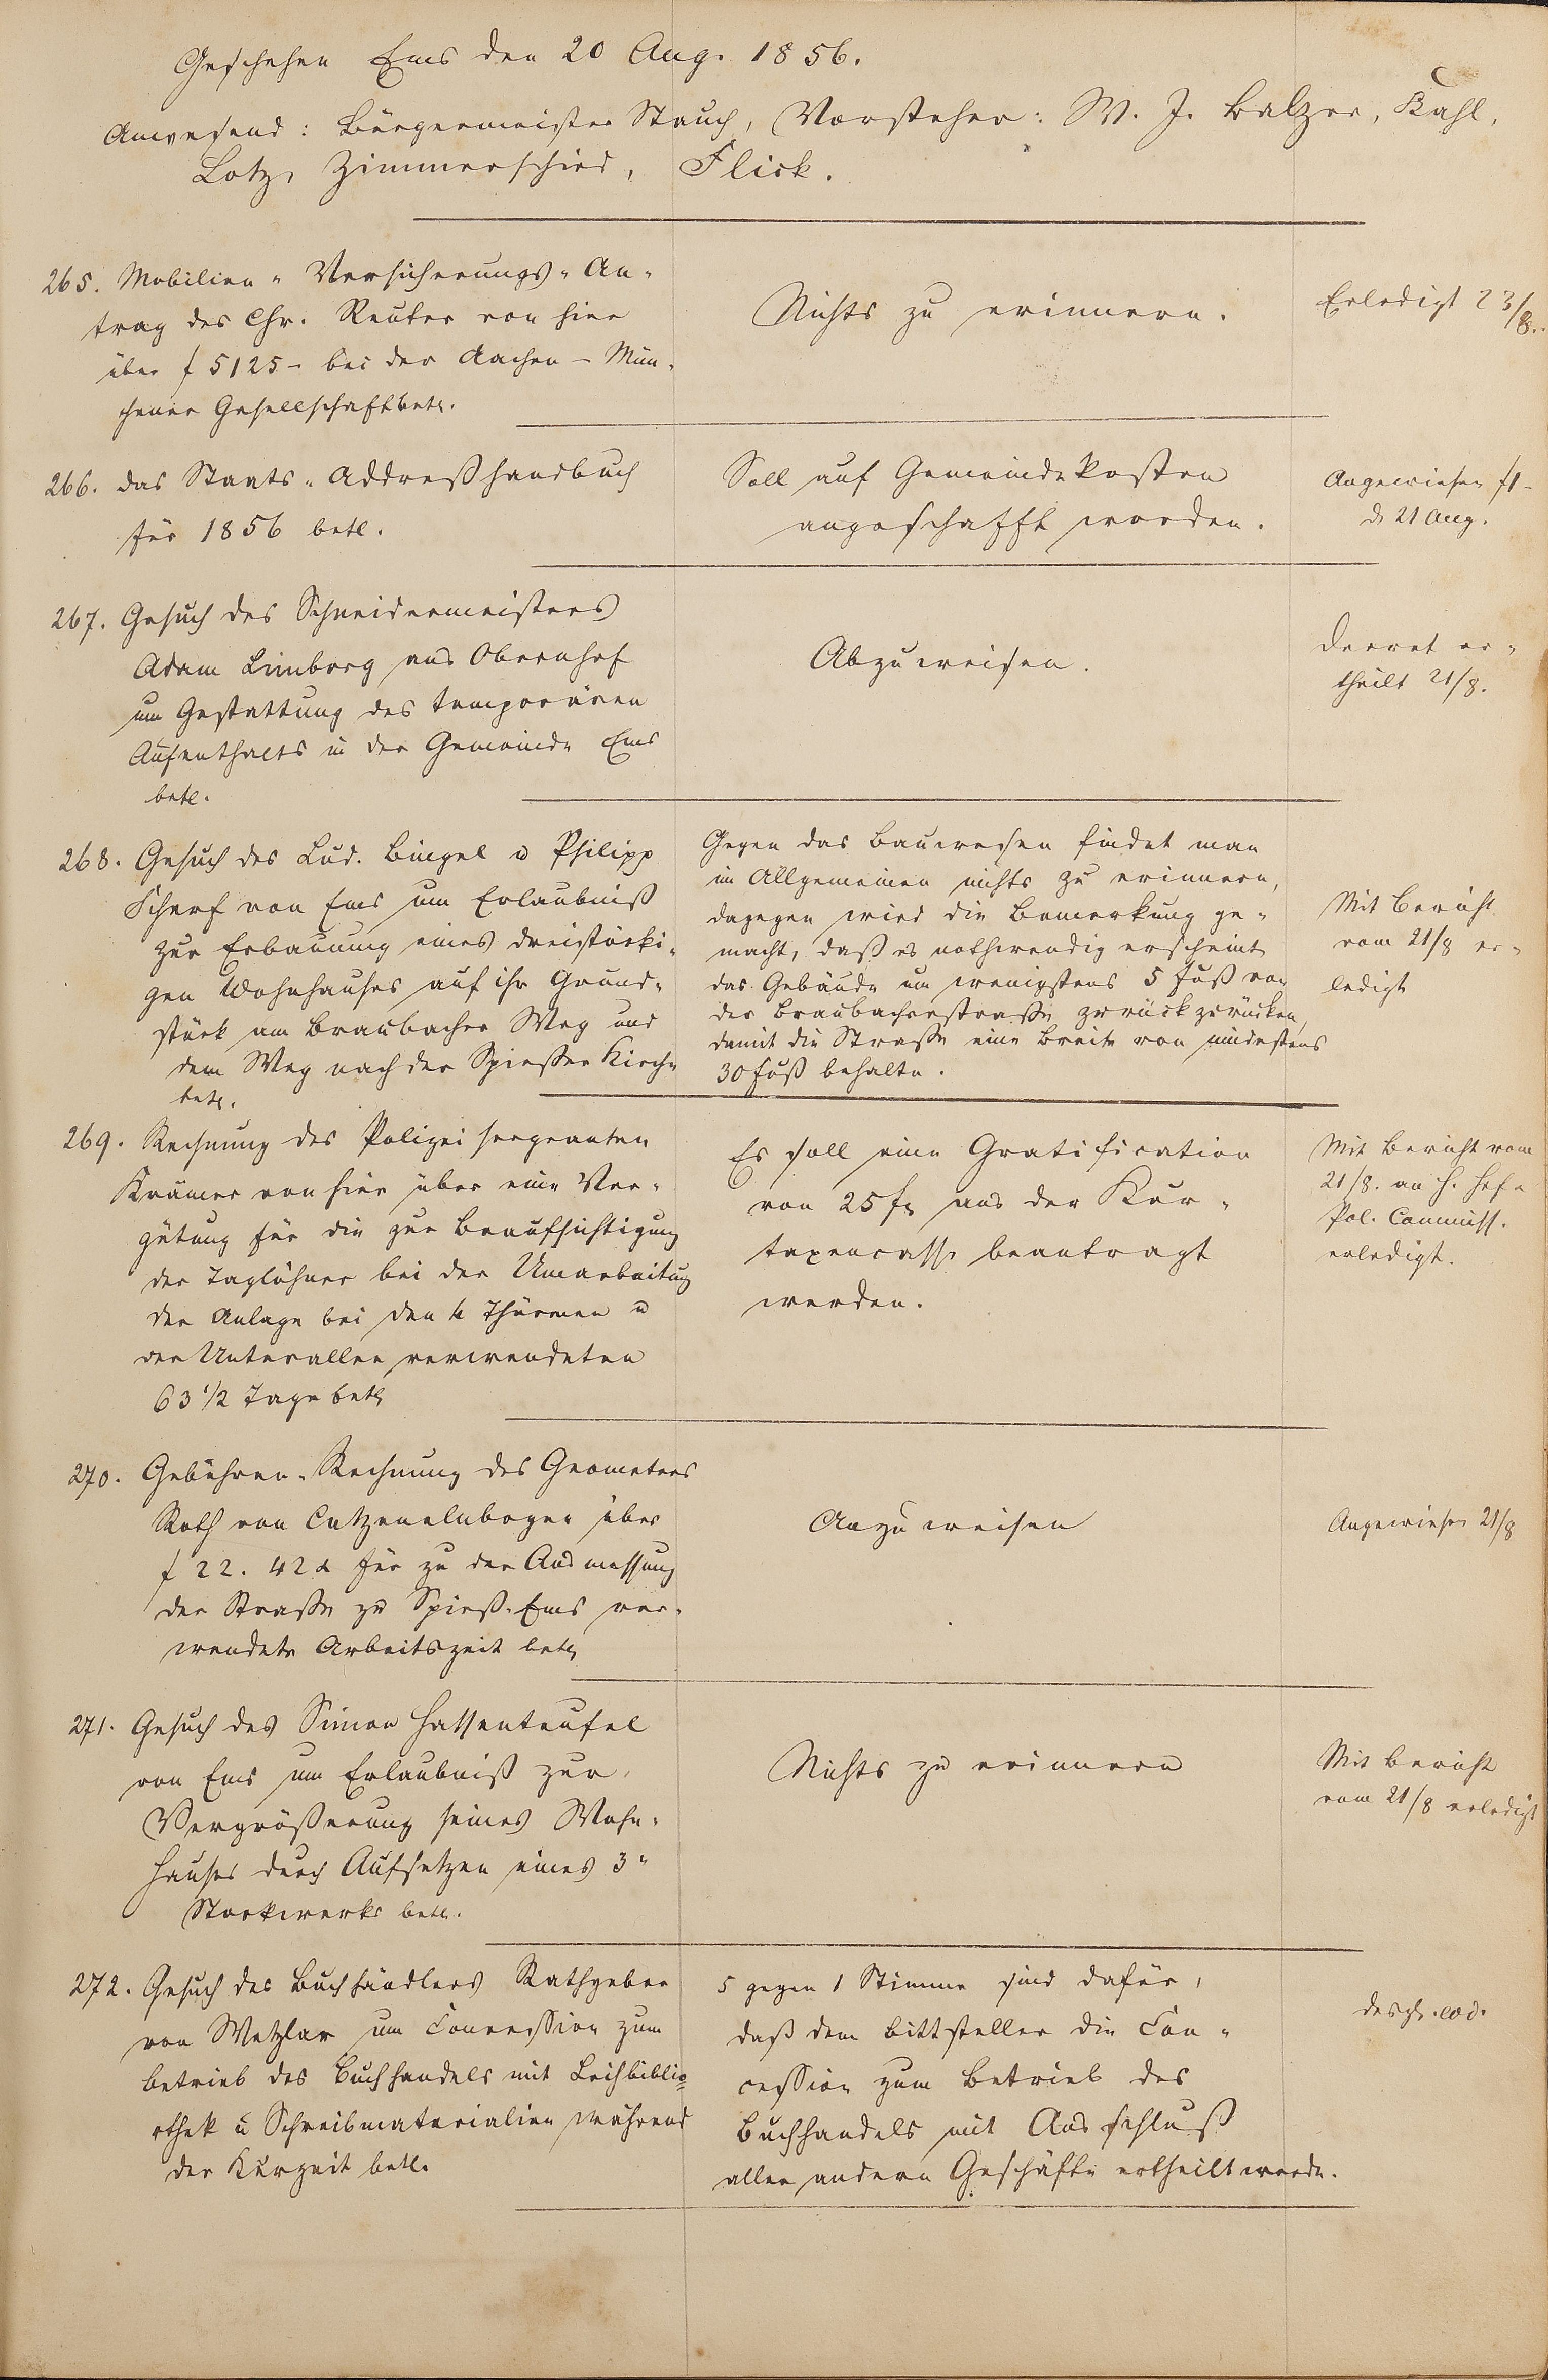 Geschehen Ems den 20 Aug. 1856.
Anwesend: Bürgermeister Stauch, Vorsteher: W. J. Balzer, Kahl,
Lotz, Zimmerschied, Flick.
265. Mobilien-Versicherungs-An-
trag des Chr. Reuter von hier
über f 5125 - bei der Aachen-Mün-
chener Gesellschaft betr.
Nichts zu erinnern.
Erledigt 23/8.
266. das Staats-Addreßhandbuch
für 1856 betr.
Soll auf Gemeindekosten
angeschafft werden.
Angewiesen f 1 -
d. 21 Aug.
267. Gesuch des Schneidermeisters
Adam Limborg aus Obernhof
um Gestattung des temporären
Aufenthalts in der Gemeinde Ems
betr.
Abzuweisen.
Decret er-
theilt 21/8.
268. Gesuch des Lud. Bingel u Philipp
Scherf von Ems um Erlaubniß
zur Erbauung eines dreistöcki-
gen Wohnhauses auf ihr Grund-
stück am Braubacher Weg und
dem Weg nach der Spiesser Kirche
betr.
Gegen das Bauwesen findet man
im Allgemeinen nichts zu erinnern,
dagegen wird die Bemerkung ge-
macht, daß es nothwendig erscheint
das Gebäude um wenigstens 5 Fuß von
der Braubacherstraße zurück zu rücken,
damit die Straße eine Breite von mindestens
30 Fuß behalte.
Mit Bericht
vom 21/8 er-
ledigt
269. Rechnung des Polizeisergeanten
Krämer von hier über eine Ver-
gütung für die zur Beaufsichtigung
der Taglöhner bei der Umarbeitung
der Anlage bei den 4 Thürmen u
der Unterallee verwendeten
63 1/2 Tage betr
Es soll eine Gratification
von 25 fl aus der Kur-
taxencasse beantragt
werden.
Mit Bericht vom
21/8. an H. Hrz.
Pol. Commiss.
erledigt.
270. Gebühren-Rechnung des Geometers
Roth von Catzenelnbogen über
f 22. 42 x für zu der Ausmessung
der Straße zu Spieß-Ems ver-
wendete Arbeitszeit betr
Anzuweisen
Angewiesen 21/8
271. Gesuch des Simon Hassenteufel
von Ems um Erlaubniß zur
Vergrößerung seines Wohn-
hauses durch Aufsetzen eines 3n
Stockwerks betr.
Nichts zu erinnern
Mit Bericht
vom 21/8 erledigt
272. Gesuch des Buchhändlers Rathgeber
von Wetzlar um Concession zum
Betrieb des Buchhandels mit Leihbiblio-
othek u Schreibmaterialien während
der Kurzeit betr.
5 gegen 1 Stimme sind dafür,
daß dem Bittsteller die Con-
cession zum Betrieb des
Buchhandels mit Ausschluß
aller andern Geschäfte ertheilt werde.
desgl. eod.